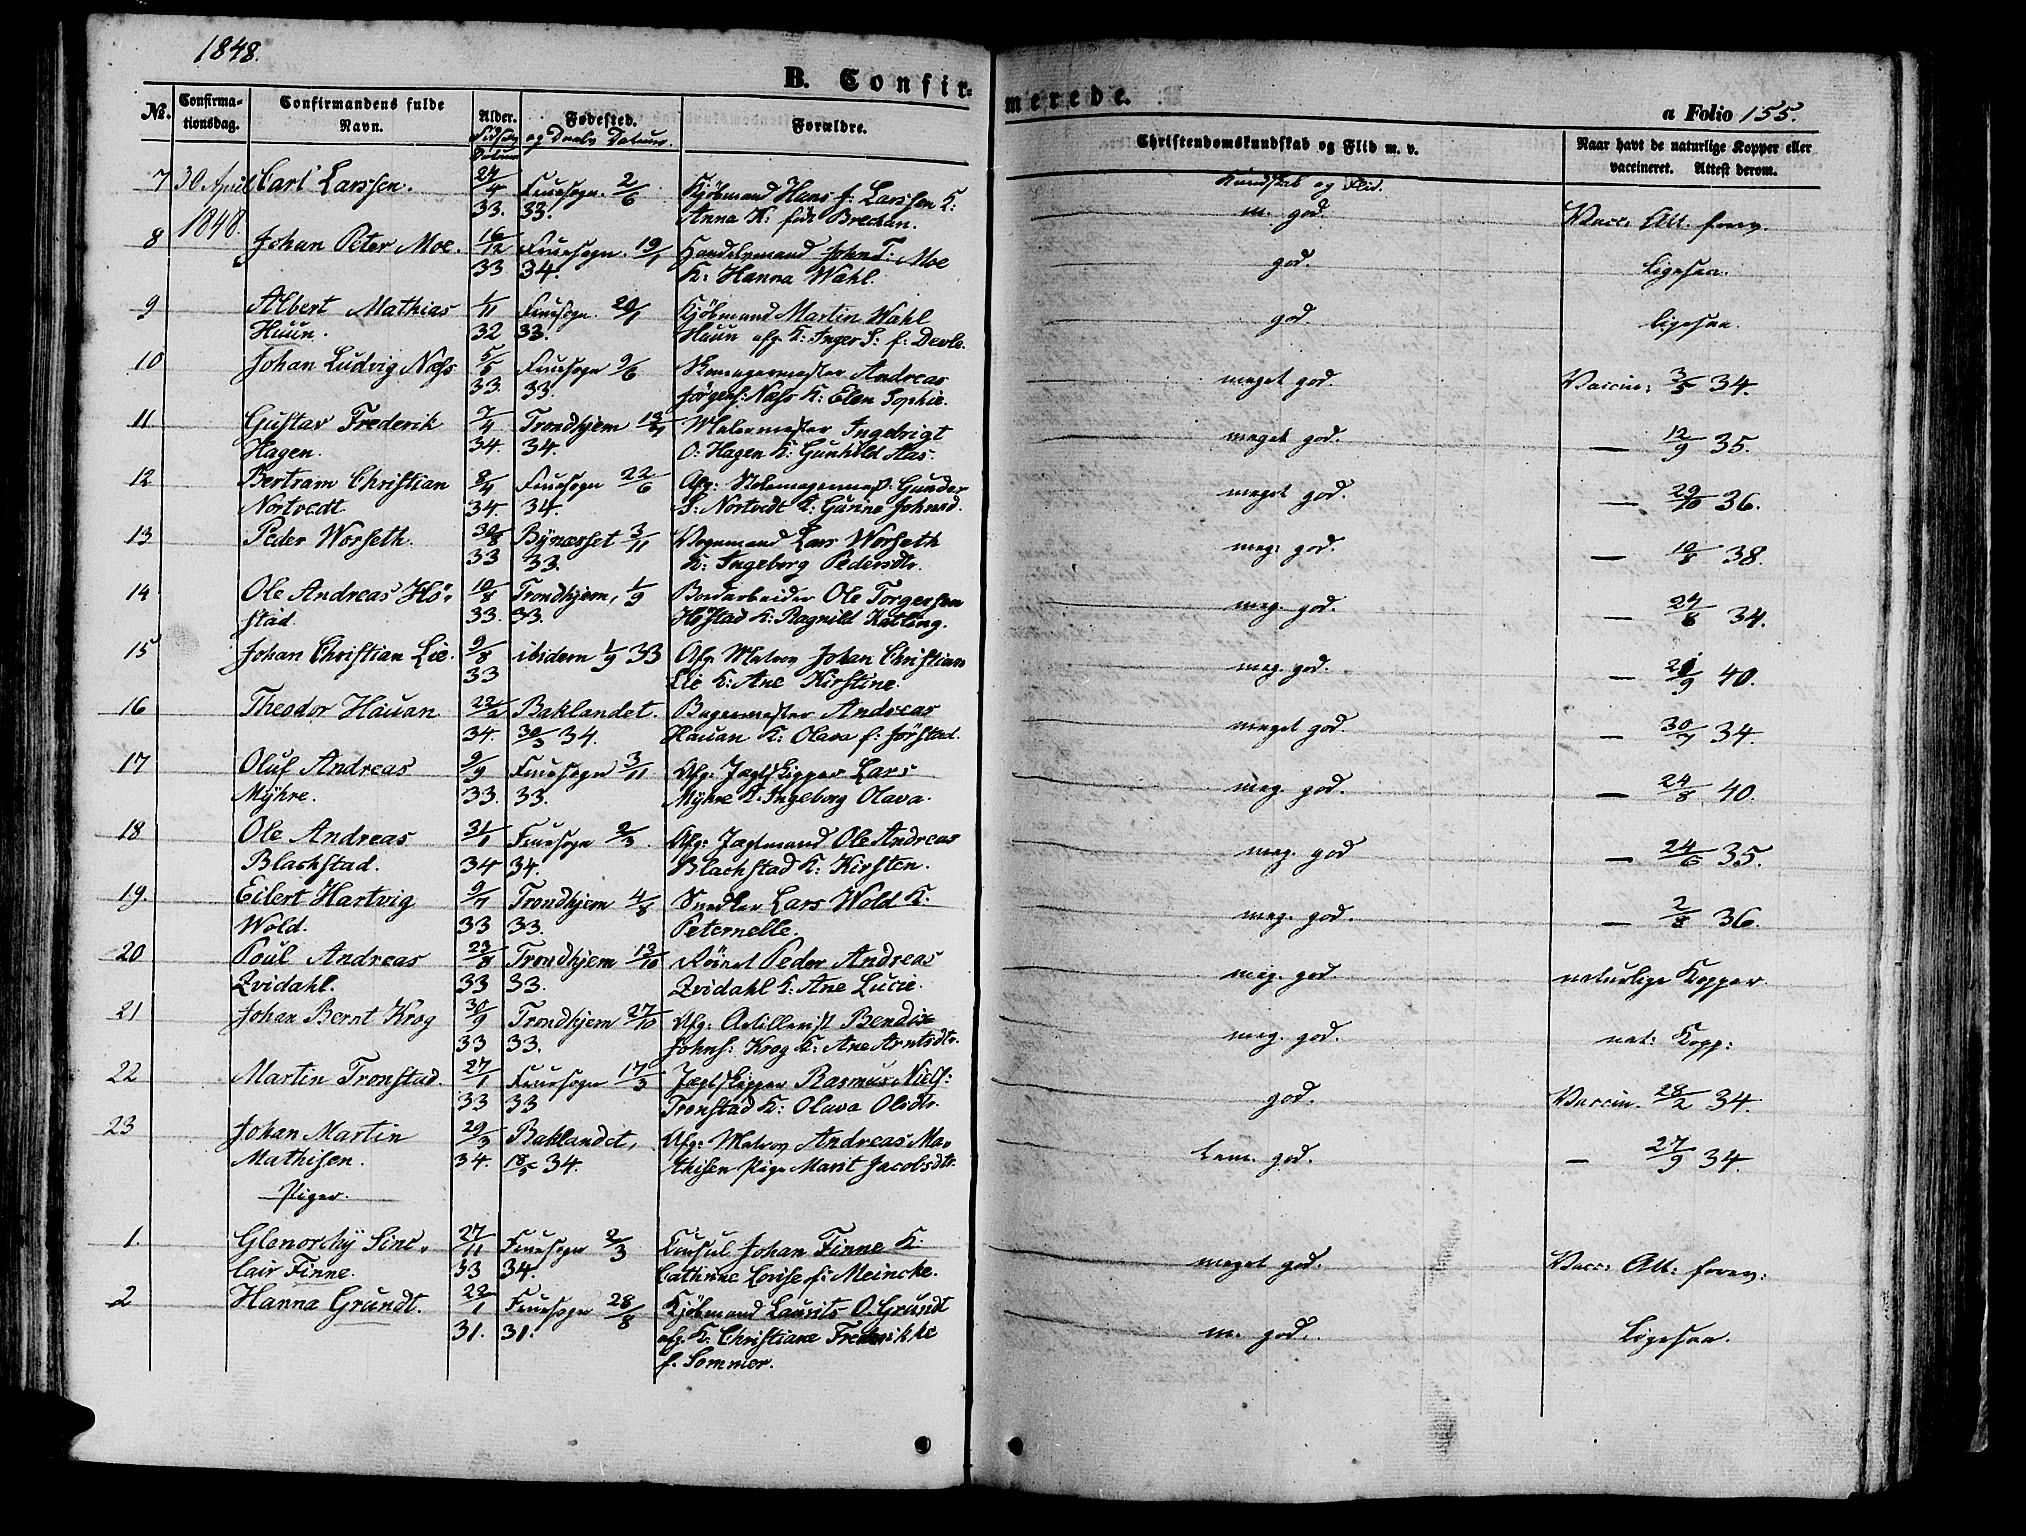 1848.
B. Confir-
merede.
a Folio 155.
No. Confirma-tionsdag. Confirmandens fulde Navn. Alder. Fødested. og Daabs Datum. Forældre. Christendomskundskab og Flid m. v. Naar havt de naturlige Kopper eller vaccineret. Attest derom.
Kundskab og Flid.
7 30 April Carl Larssen. 24/4 Frue sogn. 2/6 Kjöbmand Hans f: Larssen K: m. god. Vacc: Att. forev.
1848. 33. 33. Anna K: föds Brechan.
8 Johan Peter Moe. 16/12 Fruesogn. 19/1 Handelsmand John T: Moe god. Ligesaa.
33 34. K: Hanna Wahl.
9 Albert Mathias 1/11 Fruesogn. 20/1 Kjöbmand Martin Wahl god. ligesaa.
Huun. 32 33. Huun afg. K: Inger S: f: Devle.
10 Johan Ludvig Næss 5/5 Fruesogn 9/6 Skomagermester Andreas meget god. Vaccin: 3/5 34.
33. 33. Jörgens: Næss K: Elen Sophie.
11 Gustav Frederik 7/4 Trondhjem 13/4 Malermester Ingebrigt meget god. — 12/9 35.
Hagen. 34. 34. O: Hagen K: Gunhild Aas.
12 Bertram Christian 8/4 Fruesogn 22/6 Afg: Stolemagermest. Gunder meget god. — 29/10 36.
Nortvedt 34 34. S: Nortvedt K: Gunna Johnsd.
13 Peder Worseth. 30/8 Bynæsset 3/11 Vognmand Lars Worseth meg: god. — 10/8 38.
33 33. K: Ingeborg Pedersdtr.
14 Ole Andreas Hö- 10/8 Trondhjem, 1/9 Bordarbeider Ole Torgersen meg. god. — 24/8 34.
stad. 33. 33. Höstad K: Ragnild Kulling.
15 Johan Christian Lie. 9/8 ibidem 1/9 33 Afg: Matros Johan Christian meg. god. — 40.
33 Lie K: Ane Kirstine.
16 Theodor Hauan 22/2 Baklandet. Bagermester Andreas meget god. — 30/7 34.
34. 30/3 34. Hauan K: Olava f: Jörstad.
17 Oluf Andreas 9/9 Fruesogn 3/11 Afg: Jægtskipper Lars meg. god. — 24/8 40.
Myhre. 33. 33. Myhre K. Ingeborg Olava.
18 Ole Andreas 31/1 Fruesogn 2/3 Afg: Jægtmand Ole Andreas meg. god — 24/6 35.
Blachstad. 34 34. Blachstad K: Kirsten.
19. Eilert Hartvig 9/7 Trondhjem 4/8 Snedker Lars Wold K: meg. god. — 2/8 36.
Wold. 33 33. Peternelle.
20 Poul Andreas 23/8 Trondhjem 13/10 Peder Andreas meg. god naturlige Kopper.
Qvidahl. 33 33. Qvidahl K: Ane Lucie.
21 Johan Bernt Krog 30/9 Trondhjem 27/10 Afg: Artillerist Bendix meg. god. nat: Kopp:
33 33. Johns: Krog K: Ane Arntsdtr.
22 Martin Tronstad. 27/1 Fruesogn 17/3 Jægtskipper Rasmus Niels: god. Vaccin. 28/2 34.
33 33 Tronstad K: Olava Olsdtr.
23 Johan Martin 29/3 Baklandet, Afg: Matros Andreas Ma- tem. god. — 27/9 34.
Mathisen. 34. 18/5 34. thisen Pige Marit Jacobsdtr.
Piger.
1. Glenorchy Sinc- 27/11 Fruesogn 2/3 Consul Johan Finne K: meget god. Vacc: Att: forev:
lair Finne. 33 34. Cathrine Lovise f: Meincke.
2 Hanna Grundt. 22/1 Fruesogn 28/8 Kjöbmand Laurits O. Grundt m. god. Ligesaa.
31. 31. afg. K: Christiane Frederikke
f. Sommer.